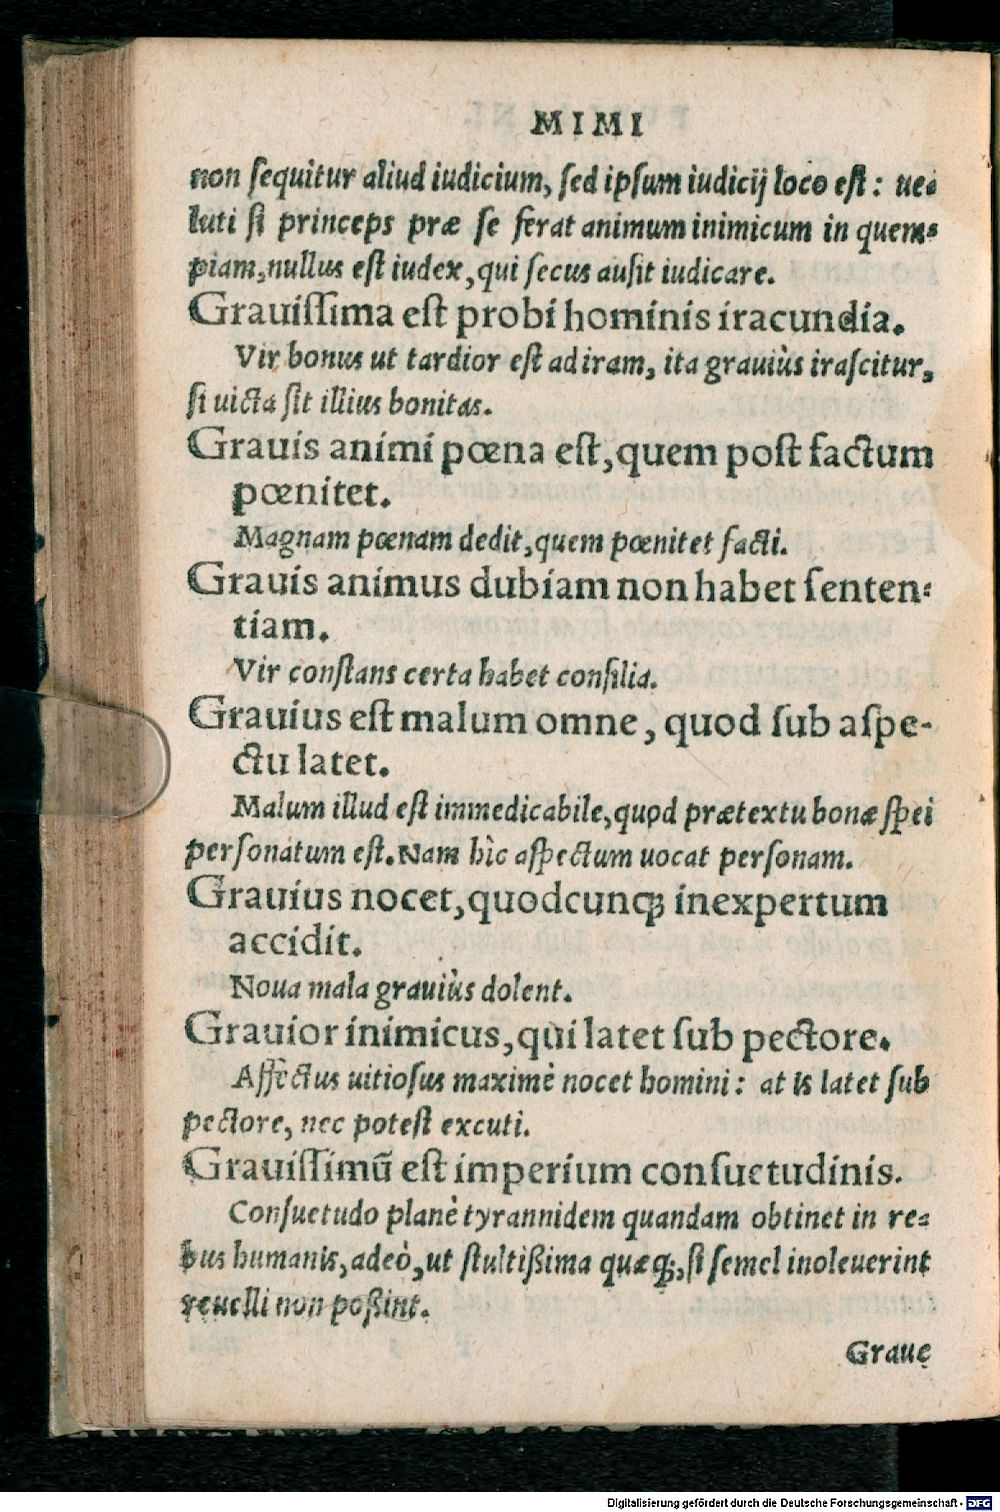 MIMI
non ſequitur aliud iudicium, ſed ipſum iudicij loco eſt: ue⸗
luti ſi princeps præ ſe ferat animum inimicum in quem⸗
piam, nullus eſt iudex, qui ſecus auſit iudicare.
Grauiſſima eſt probi hominis iracundia.
Vir bonus ut tardior eſt ad iram, ita grauiùs iraſcitur,
ſi uicta ſit illius bonitas.
Grauis animi pœna eſt, quem poſt factum
pœnitet.
Magnam pœnam dedit, quem pœnitet facti.
Grauis animus dubiam non habet ſenten⸗
tiam.
Vir conſtans certa habet conſilia.
Grauius eſt malum omne, quod ſub aſpe-
ctu latet.
Malum illud eſt immedicabile, quod prætextu bonæ ſpei
perſonatum eſt. Nam hìc aſpectum uocat perſonam.
Grauius nocet, quodcunq; inexpertum
accidit.
Noua mala grauiùs dolent.
Grauior inimicus, qui latet ſub pectore.
Affectus uitioſus maximè nocet homini: at is latet ſub
pectore, nec poteſt excuti.
Grauiſſimũ eſt imperium conſuetudinis.
Conſuetudo planè tyrannidem quandam obtinet in re⸗
bus humanis, adeò, ut ſtultißima quæq;, ſi ſemel inoleuerint
reuelli non poßint.
Graue
Digitalisierung gefördert durch die Deutsche Forschungsgemeinschaft - DFG